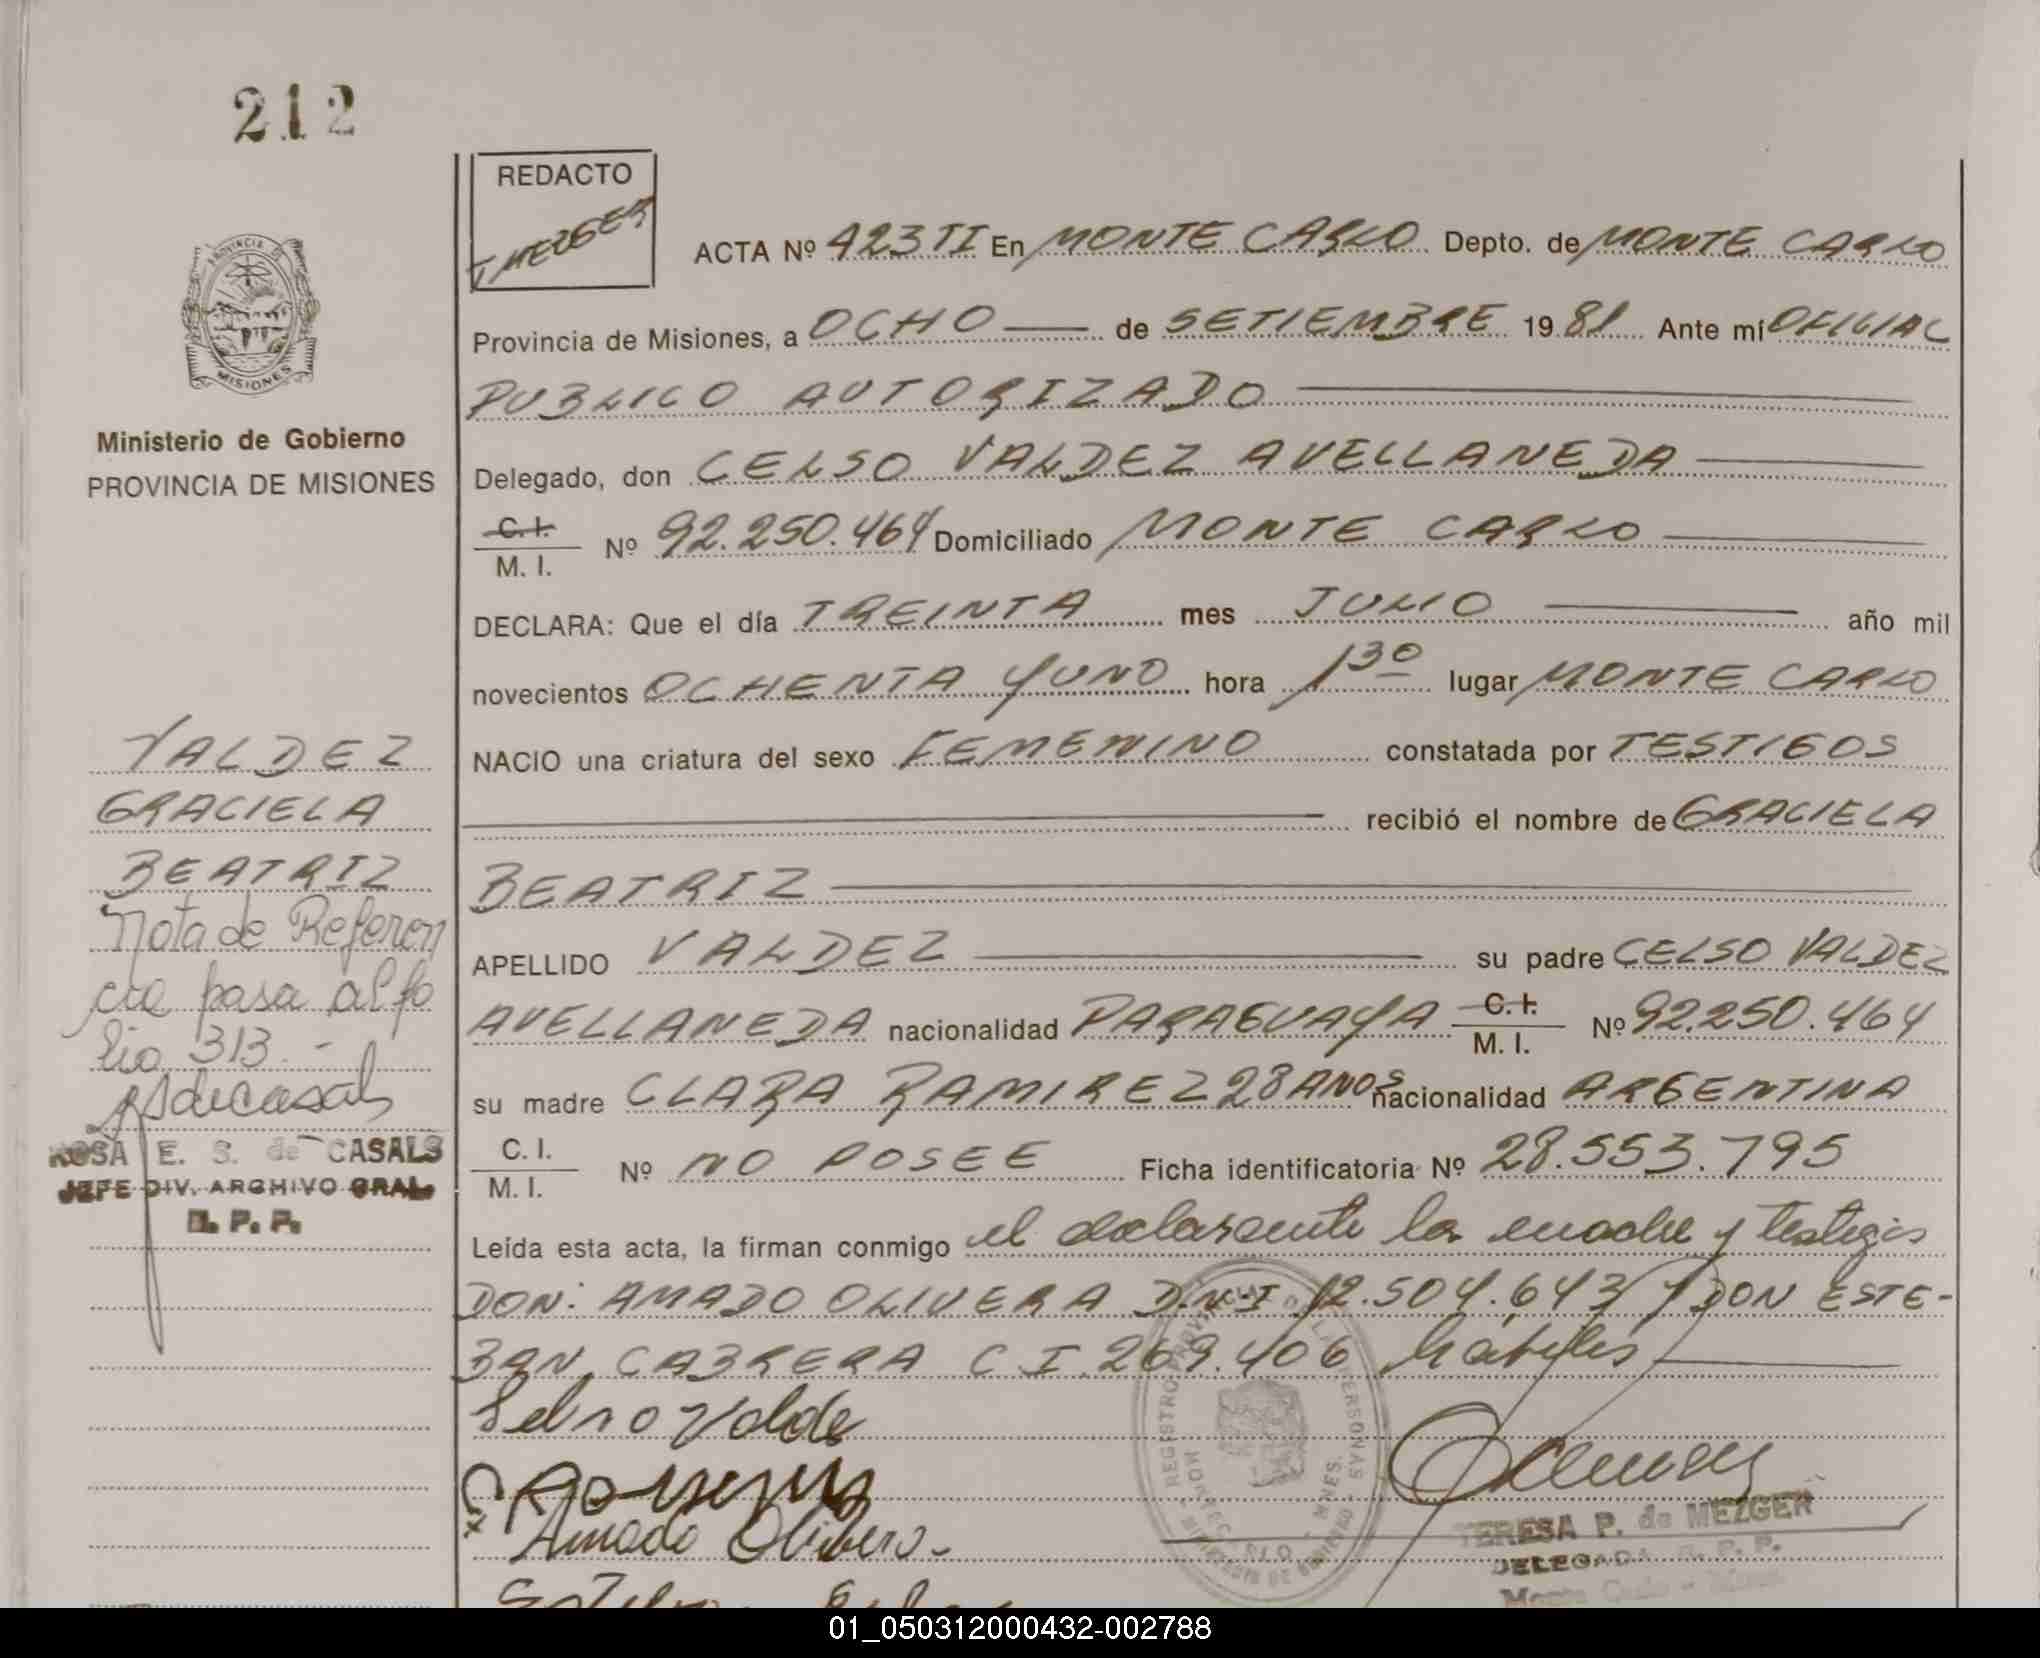 212
REDACTO
T MEZGER
ACTA Nº 423 TI En MONTE CARLO Depto. de MONTE CARLO
Provincia de Misiones, a OCHO de SETIEMBRE 1981 Ante mí OFICIAL
PUBLICO AUTORIZADO
Delegado, don CELSO VALDEZ AVELLANEDA
C. I.
M. I. Nº 92.250.464 Domiciliado MONTE CARLO
DECLARA: Que el día TREINTA mes JULIO año mil
novecientos OCHENTA Y UNO hora 1 30 lugar MONTE CARLO
NACIO una criatura del sexo FEMENINO constatada por TESTIGOS
recibió el nombre de GRACIELA
BEATRIZ
APELLIDO VALDEZ su padre CELSO VALDEZ
AVELLANEDA nacionalidad PARAGUAYA C. I. M. I. Nº 92.250.464
su madre CLARA RAMIREZ 28 AÑOS nacionalidad ARGENTINA
C. I.
M. I. Nº NO POSEE Ficha identificatoria Nº 28.553.795
Leída esta acta, la firman conmigo el declarante la madre y testigos
DON: AMADO OLIVERA D.N.I 12.504.643 Y DON ESTE-
BAN CABRERA C I 269.406 hábiles
Celso Valde
Amado Olivera.
TERESA P. de MEZGER
DELEGADA R. P. P.
Monte Carlo - Mnes.
PROVINCIA DE
MISIONES
Ministerio de Gobierno
PROVINCIA DE MISIONES
VALDEZ
GRACIELA
BEATRIZ
Nota de Referen
cia pasa al fo
lio 313.-
ROSA E. S. de CASALS
JEFE DIV. ARCHIVO GRAL.
R. P. P.
01_050312000432-002788